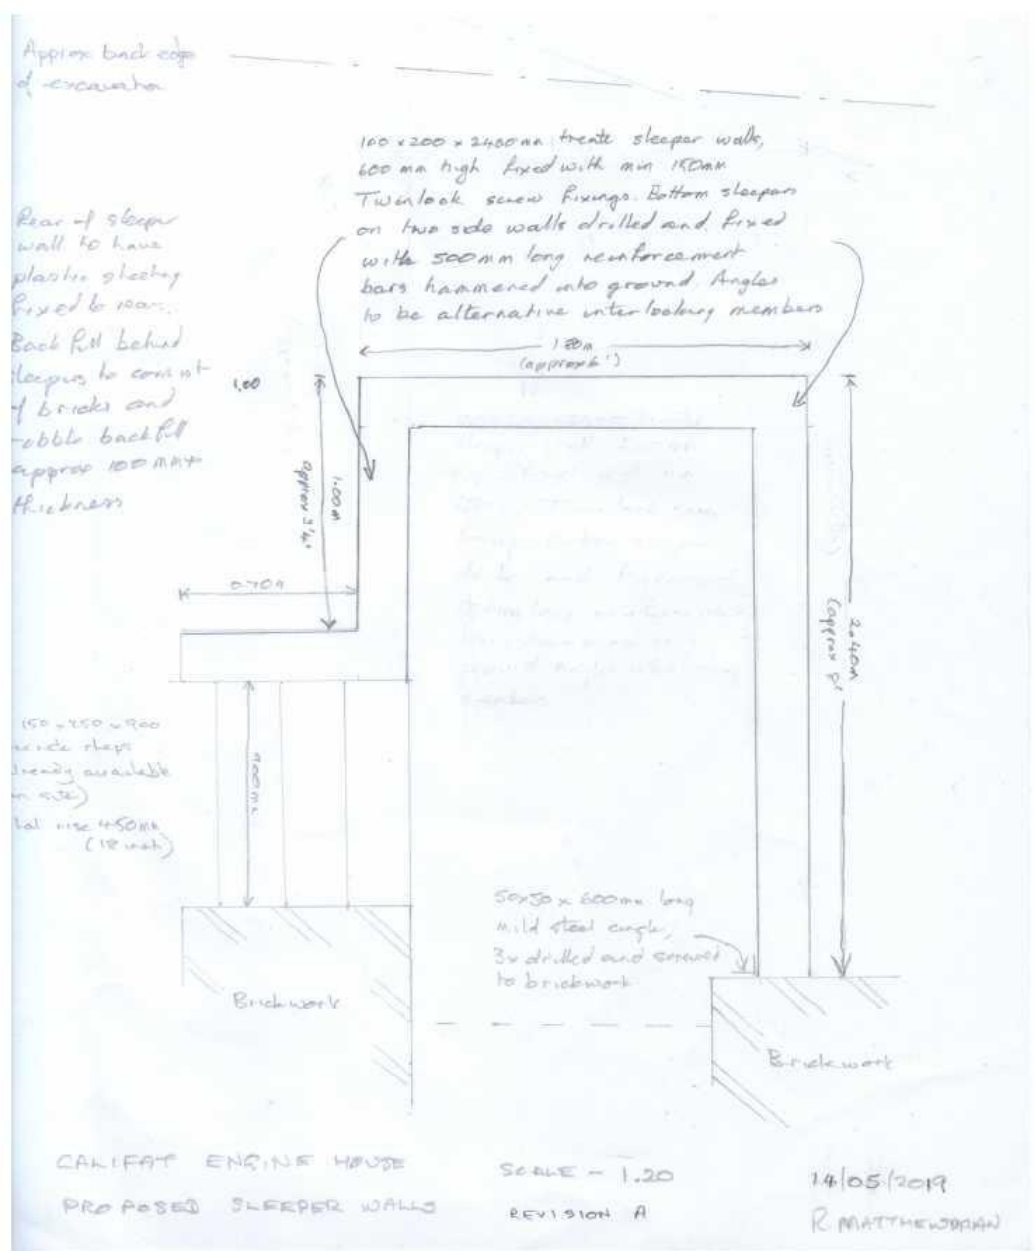 Approx back edge
of excavation
100 x 200 x 2400mm treate sleeper walls,
600 mm high fixed with min 150mm
Twinlock screw fixings. Bottom sleepers
on two side walls drilled and fixed
with 500mm long reinforcement
bars hammered into ground. Angles
to be alternative interlocking members
Rear of sleeper
wall to have
plastic sheeting
fixed to rear.
Back fill behind
sleepers to consist
of bricks and
backfill
approx 100mm
thickness
1.80m
(approx 6')
1.00
1.00m
approx 3'4"
0.70m
2.40m
(approx 8'
150 x 250 x 900
steps
already available
on site)
rise 450mm
(18 inch)
900mm
50x50 x 600mm long
mild steel angle,
3x drilled and screwed
to brickwork
Brickwork
Brickwork
CALIFAT ENGINE HOUSE
PROPOSED SLEEPER WALLS
SCALE - 1.20
REVISION A
14/05/2019
R MATTHEWMAN